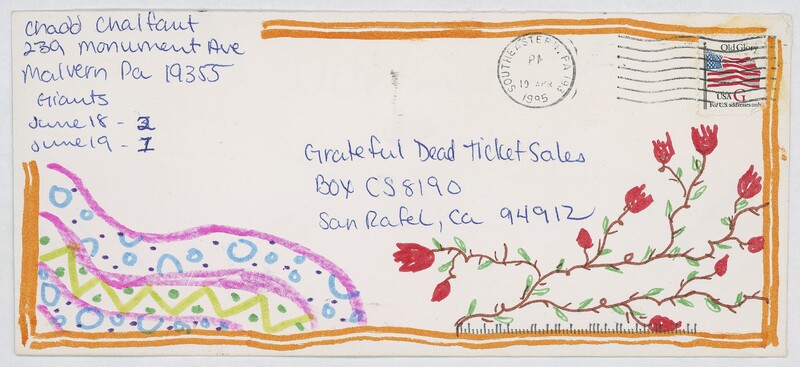 Chadd Chalfant
239 Monument Ave
Malvern Pa 19355
Giants
June 18 - 2
June 19 - 1
Grateful Dead Ticket Sales
Box CS8190
San Rafel, Ca 94912
SOUTHEASTERN, PA 193
PM
19 APR
1995
Old Glory
USA G
For U.S. addresses only